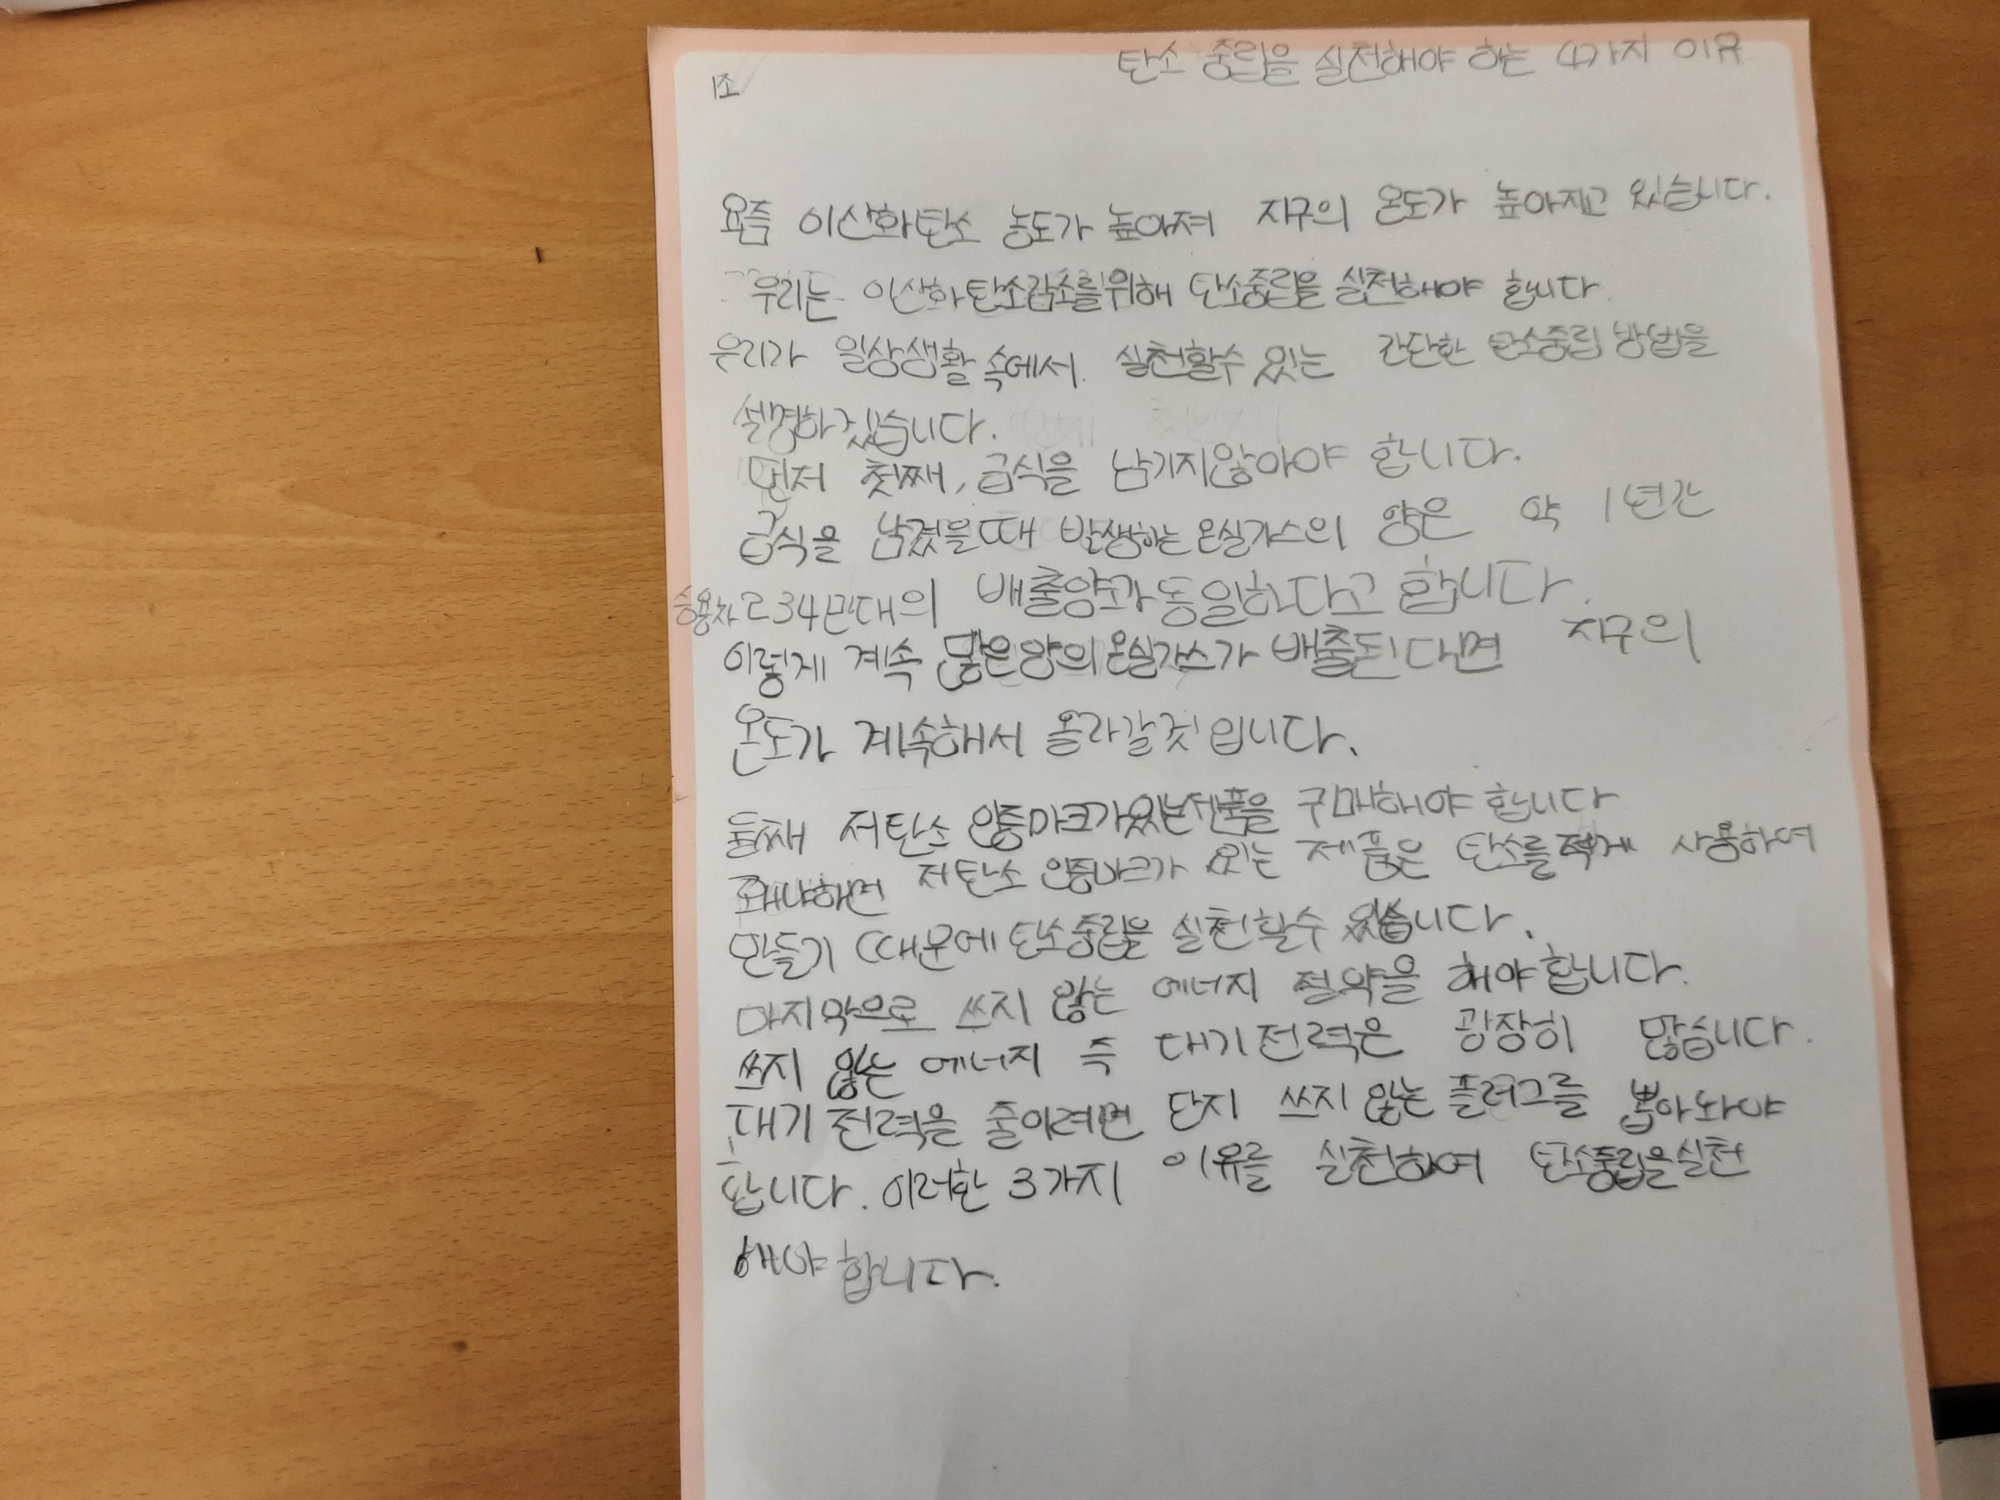 탄소 중립을 실천해야 하는 4가지 이유
1조
요즘 이산화탄소 농도가 높아져 지구의 온도가 높아지고 있습니다.
우리는 이산화탄소감소를위해 탄소중립을 실천해야 합니다
우리가 일상생활 속에서 실천할수 있는 간단한 탄소중립 방법을
설명하겠습니다.
먼저 첫째, 급식을 남기지않아야 합니다.
급식을 남겼을때 발생하는 온실가스의 양은 약 1년간
승용차 234만대의 배출양과 동일하다고 합니다.
이렇게 계속 많은양의 온실가스가 배출된다면 지구의
온도가 계속해서 올라갈것 입니다.
둘째 저탄소 인증마크가있는제품을 구매해야 합니다
왜냐하면 저탄소 인증마크가 있는 제품은 탄소를적게 사용하여
만들기 때문에 탄소중립을 실천할수 있습니다.
마지막으로 쓰지 않는 에너지 절약을 해야합니다.
쓰지 않는 에너지 즉 대기전력은 굉장히 많습니다.
대기 전력을 줄이려면 단지 쓰지 않는 플러그를 뽑아놔야
합니다. 이러한 3가지 이유를 실천하여 탄소중립을실천
해야 합니다.